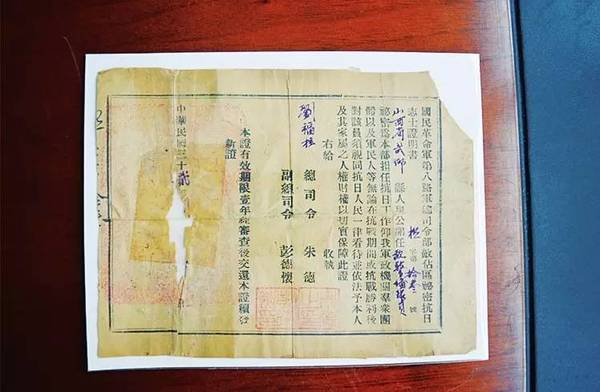 國民革命軍第八路軍總司令部敵佔區祕密抗日
志士證明書
字第拾叁號
山西省武鄉縣人現公開任敵警備隊員
祕密為本部担任抗日工作仰我軍政機關羣衆團
體以及軍民人等無論在抗戰期間或抗戰勝利後
對該員須視同抗日人民一律看待並依法予本人
及其家屬之人權財權以切實保障此證
右給
劉福柱
收執
總司令 朱德
副總司令 彭德懷
本證有效期限壹年經審查後交還本證續發
新證
中華民國三十貳